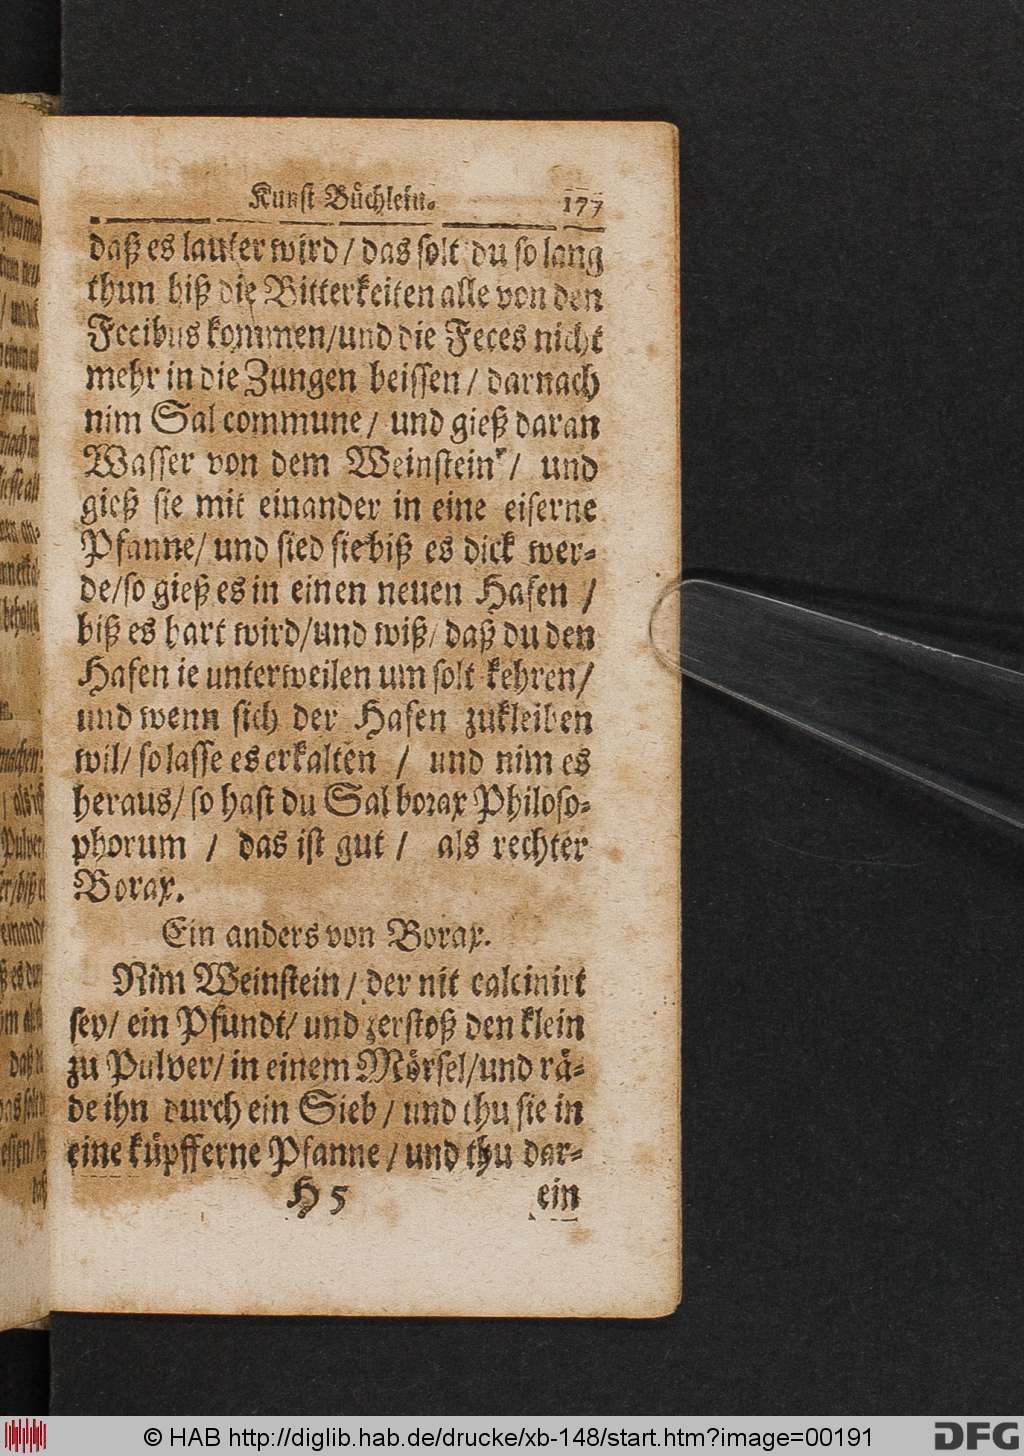 Kunst Büchlein. 177
daß es lauter wird / das solt du so lang
thun biß die Bitterkeiten alle von den
Fecibus kommen/und die Feces nicht
mehr in die Zungen beissen / darnach
nim Sal commune / und gieß daran
Wasser von dem Weinstein / und
gieß sie mit einander in eine eiserne
Pfanne/ und sied sie biß es dick wer-
de/so gieß es in einen neuen Hafen /
biß es hart wird/und wiß/ daß du den
Hafen ie unterweilen um solt kehren/
und wenn sich der Hafen zukleiben
wil/ so lasse es erkalten / und nim es
heraus/ so hast du Sal borax Philoso-
phorum / das ist gut / als rechter
Borax.
Ein anders von Borax.
Nim Weinstein / der nit calcinirt
sey/ ein Pfundt/ und zerstoß den klein
zu Pulver/ in einem Mörsel/und rä-
de ihn durch ein Sieb / und thu sie in
eine küpfferne Pfanne / und thu dar-
H 5 ein
© HAB http://diglib.hab.de/drucke/xb-148/start.htm?image=00191
DFG